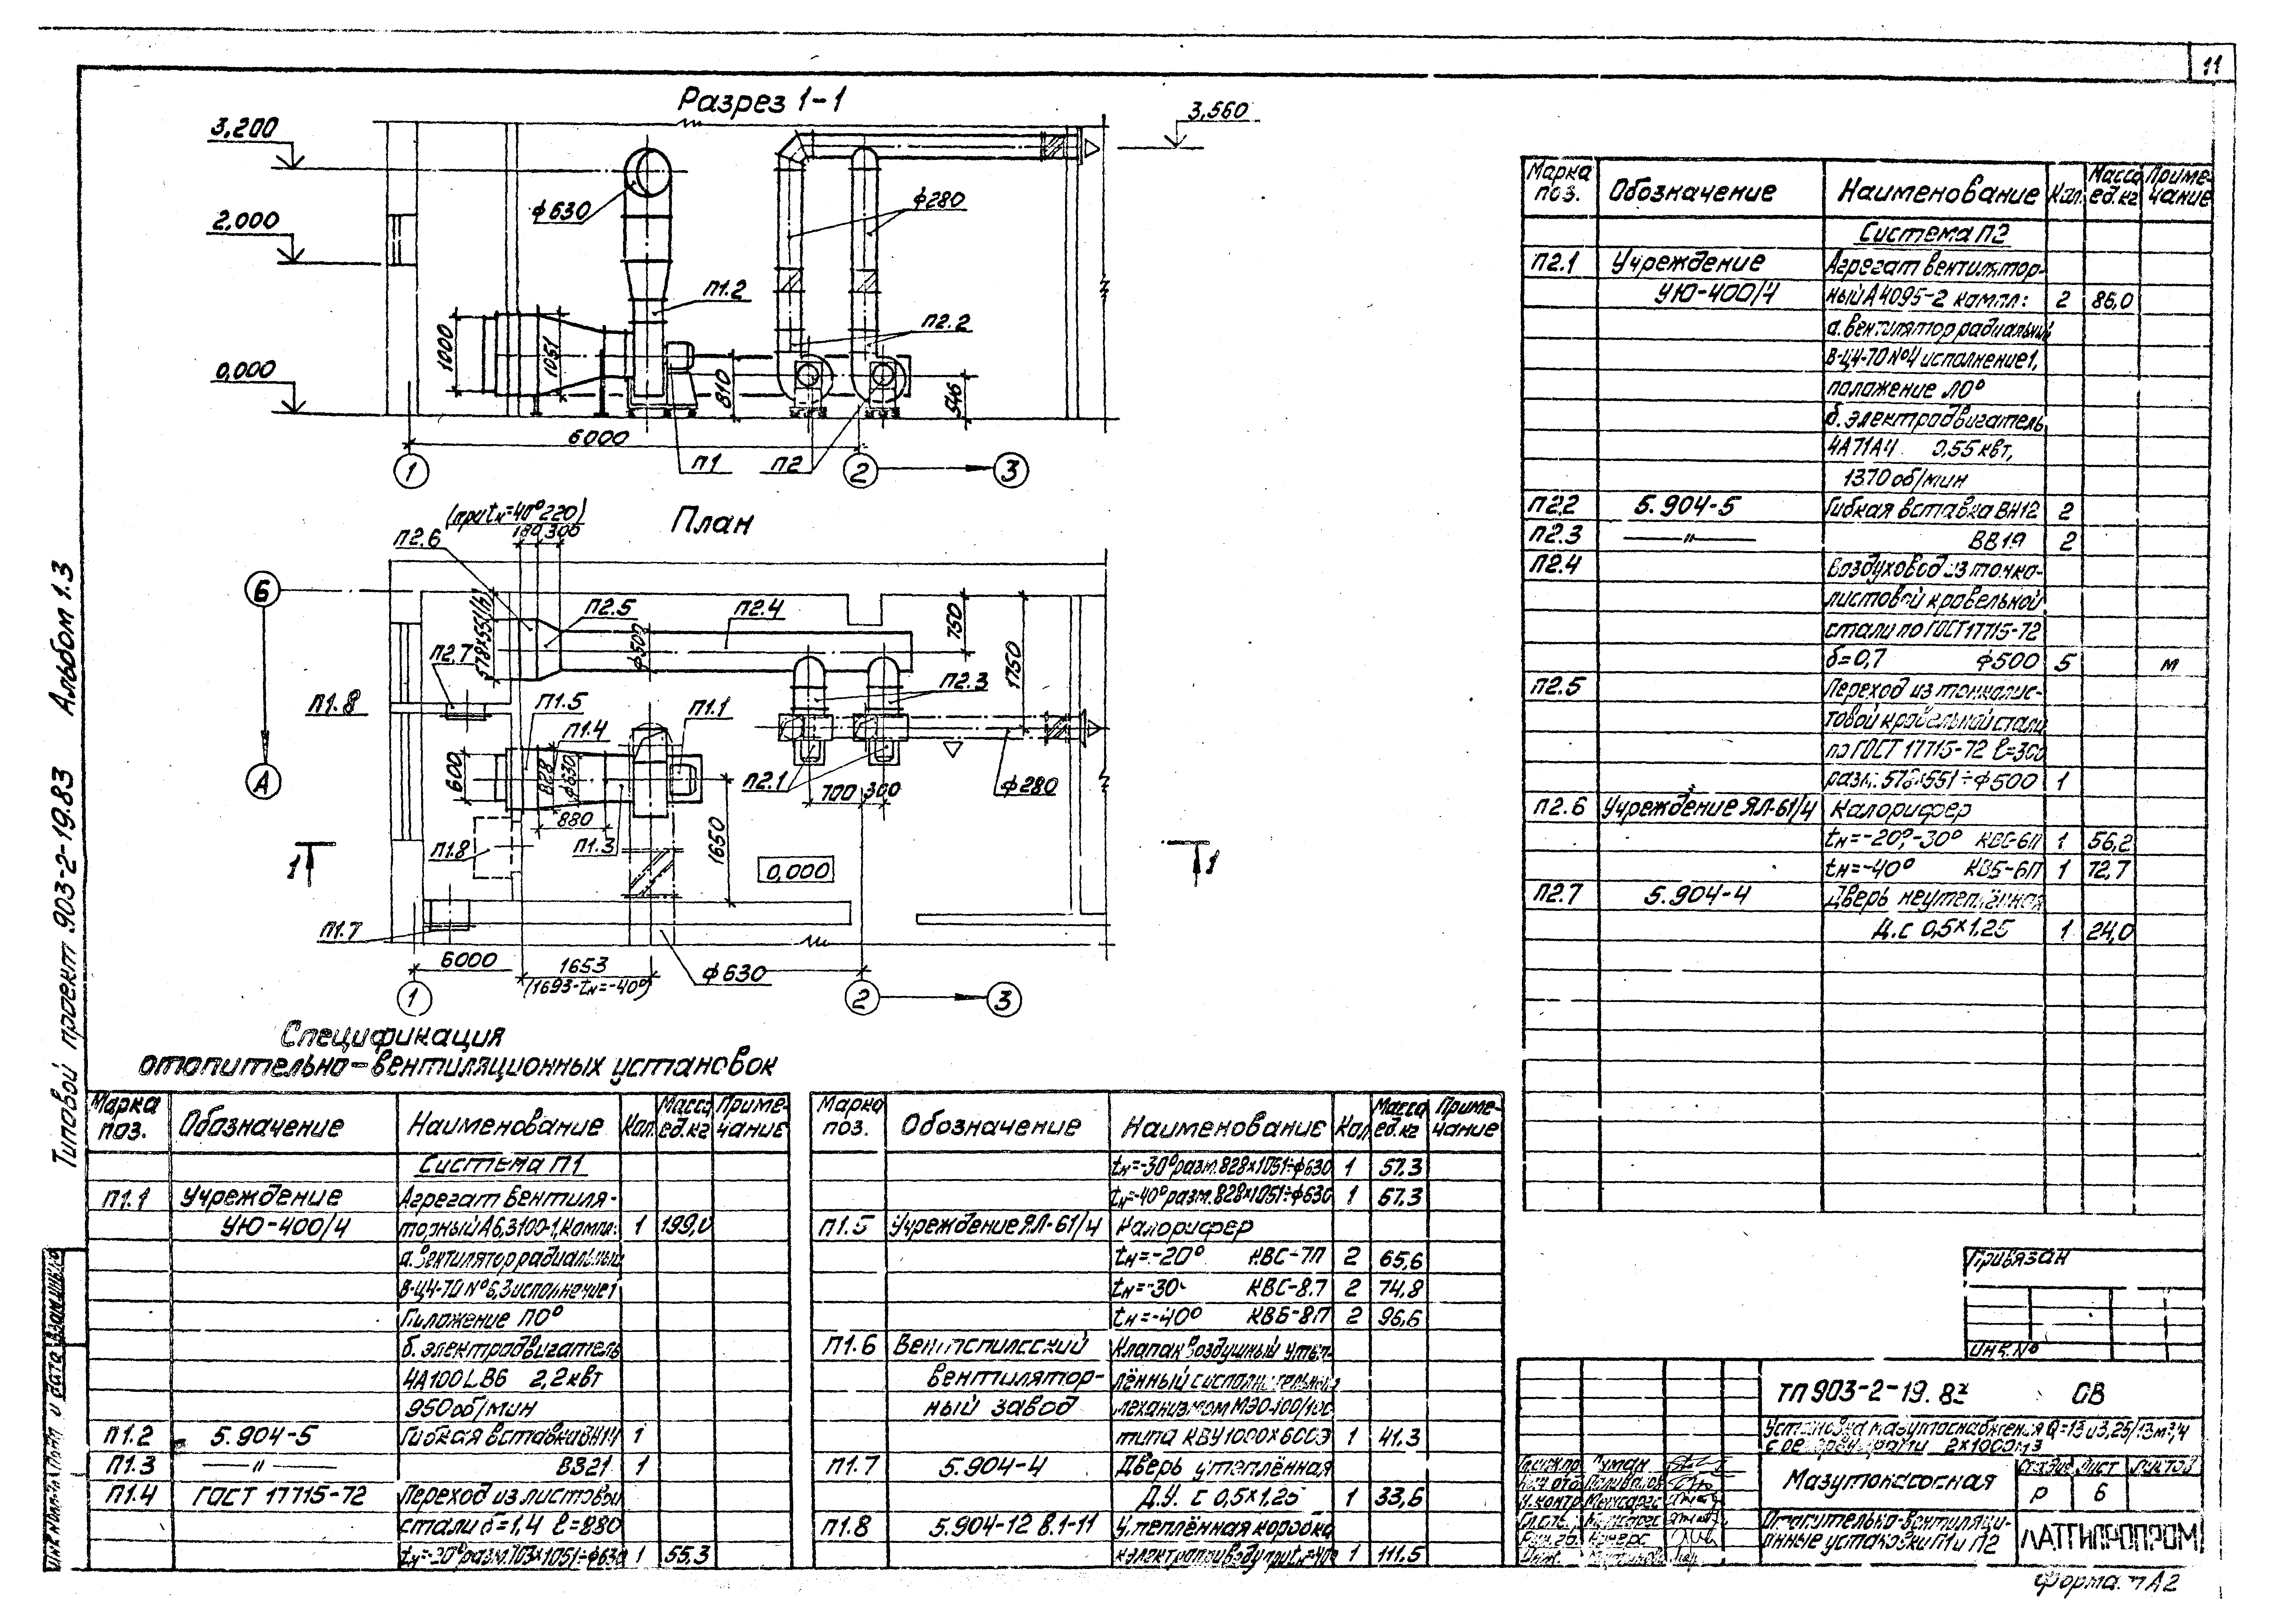 11
Типовой проект 903-2-19.83 Альбом 1.3
Разрез 1-1
3,200
2,000
0,000
3,560
ф630
ф280
П1.2
П2.2
1000
1051
810
546
6000
П1
П2
1
2
3
План
(при tн=40° 220)
180 300
П2.6
П2.5
П2.4
П2.7
П2.3
П2.1
П1.8
П1.5
П1.4
П1.1
П1.3
П1.8
П1.7
Б
А
578×551(h)
ф500
750
1750
600
828
ф630
880
700 300
ф280
1650
0,000
1
1
6000
1653
(1693-tн=-40°)
ф630
1
2
3
Спецификация
отопительно-вентиляционных установок
Марка поз. Обозначение Наименование Кол. Масса ед.кг Приме-чание
Система П1
П1.1 Учреждение Агрегат вентиля-
УЮ-400/4 торный А6,3100-1, компл: 1 199,0
а. Вентилятор радиальный
В-Ц4-70 №6,3 исполнение 1
Положение Л0°
б. электродвигатель
4А100LB6 2,2 квт
950 об/мин
П1.2 5.904-5 Гибкая вставка ВН14 1
П1.3 —"— ВВ21 1
П1.4 ГОСТ 17715-72 Переход из листовой
стали δ=1,4 ℓ=880
tн=-20° разм.703×1051÷ф630 1 55,3
Марка поз. Обозначение Наименование Кол. Масса ед.кг Приме-чание
tн=-30° разм.828×1051÷ф630 1 57.3
tн=-40° разм.828×1051÷ф630 1 57.3
П1.5 Учреждение ЯЛ-61/4 Калорифер
tн=-20° КВС-7П 2 65,6
tн=-30° КВС-8П 2 74,8
tн=-40° КВБ-8П 2 96,6
П1.6 Вентспилсский Клапан воздушный утеп-
вентилятор- лённый с исполнительным
ный завод механизмом МЭО-100/100
типа КВУ1000×600Э 1 41.3
П1.7 5.904-4 Дверь утеплённая
Д.У. с 0,5×1,25 1 33,6
П1.8 5.904-12 В.1-11 Утеплённая коробка
к электроприводу при tн=-40° 1 111.5
Марка поз. Обозначение Наименование Кол. Масса ед.кг Приме-чание
Система П2
П2.1 Учреждение Агрегат вентилятор-
УЮ-400/4 ный А4095-2 компл: 2 86,0
а. вентилятор радиальный
В-Ц4-70 №4 исполнение 1,
положение Л0°
б. электродвигатель
4А71А4 0,55 квт,
1370 об/мин
П2.2 5.904-5 Гибкая вставка ВН12 2
П2.3 —"— ВВ19 2
П2.4 Воздуховод из тонко-
листовой кровельной
стали по ГОСТ 17715-72
δ=0,7 ф500 5 м
П2.5 Переход из тонколис-
товой кровельной стали
по ГОСТ 17715-72 ℓ=300
разм. 578×551÷ф500 1
П2.6 Учреждение ЯЛ-61/4 Калорифер
tн=-20°-30° КВС-6П 1 56,2
tн=-40° КВБ-6П 1 72,7
П2.7 5.904-4 Дверь неутеплённая
Д.с 0,5×1.25 1 24,0
Привязан
ИНВ.№
ТП 903-2-19.83 ОВ
Установка мазутоснабжения Q=13 и 3,25/13 м³/ч
с резервуарами 2×1000 м3
Мазутонасосная
Стадия Лист Листов
Р 6
Отопительно-вентиляци-
онные установки П1 и П2
ЛАТГИПРОПРОМ
Формат А2